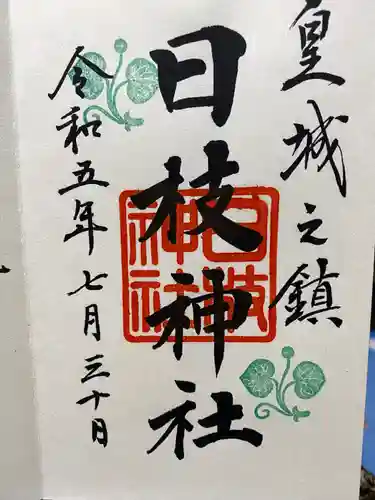 皇城之鎮
日枝神社
日枝
神社
令和五年七月三十日